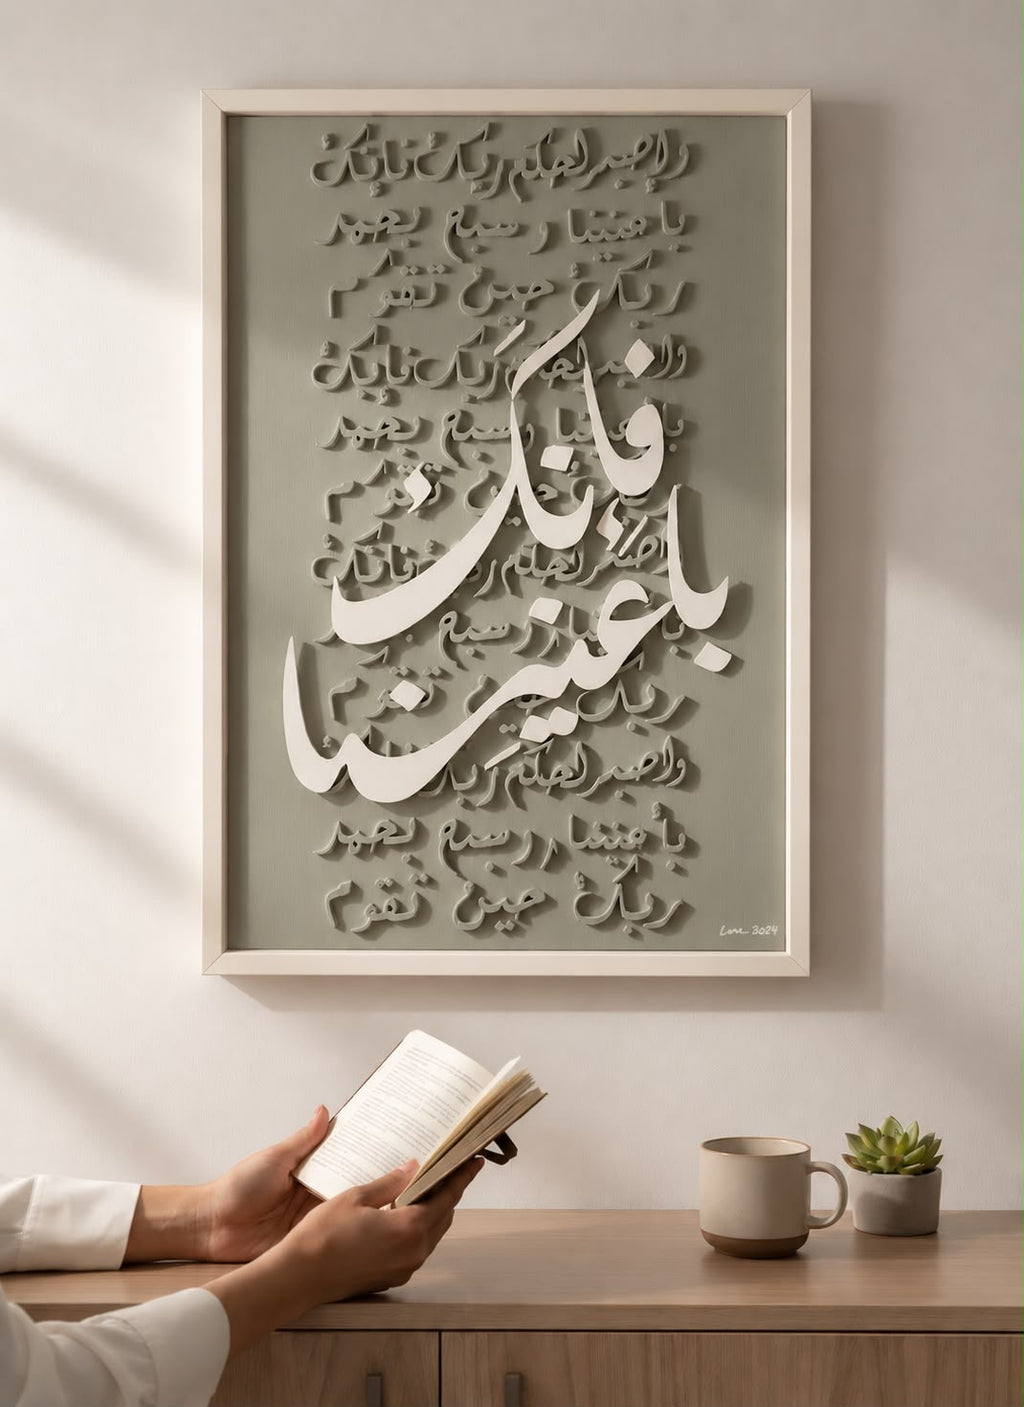 واصبر لحكم ربك فإنك
بأعيننا وسبح بحمد
ربك حين تقوم
واصبر لحكم ربك فإنك
بأعيننا وسبح بحمد
ربك حين تقوم
فَإِنَّكَ
بِأَعْيُنِنَا
واصبر لحكم ربك فإنك
بأعيننا وسبح بحمد
ربك حين تقوم
واصبر لحكم ربك فإنك
بأعيننا وسبح بحمد
ربك حين تقوم
3024